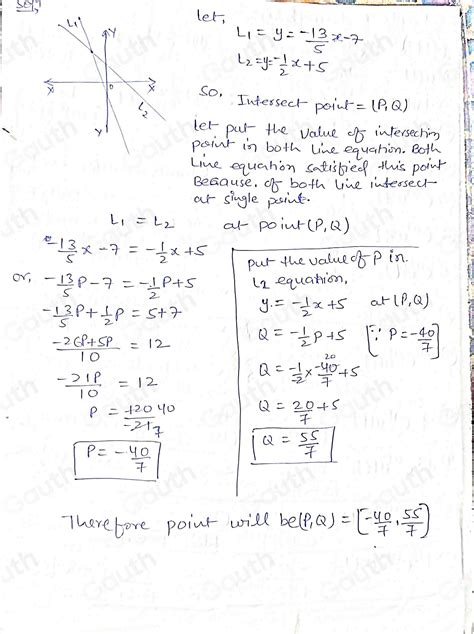 Soln
let,
L1 = y = -13/5 x - 7
L2 = y = -1/2 x + 5
L1
Y
X
X
0
L2
Y
So, Intersect point = (P, Q)
let put the value of intersection
point in both line equation. Both
Line equation satisfied this point
Because, of both line intersect
at single point.
L1 = L2 at point (P, Q)
-13/5 x - 7 = -1/2 x + 5
or, -13/5 P - 7 = -1/2 P + 5
-13/5 P + 1/2 P = 5 + 7
-26P + 5P / 10 = 12
-21P / 10 = 12
P = 120 40 / -21 7
P = -40/7
put the value of P in
L2 equation,
y = -1/2 x + 5 at (P, Q)
Q = -1/2 P + 5 [∵ P = -40/7]
Q = -1/2 × -40/7 + 5
20
Q = 20/7 + 5
Q = 55/7
Therefore point will be (P, Q) = [-40/7, 55/7]
Gauth